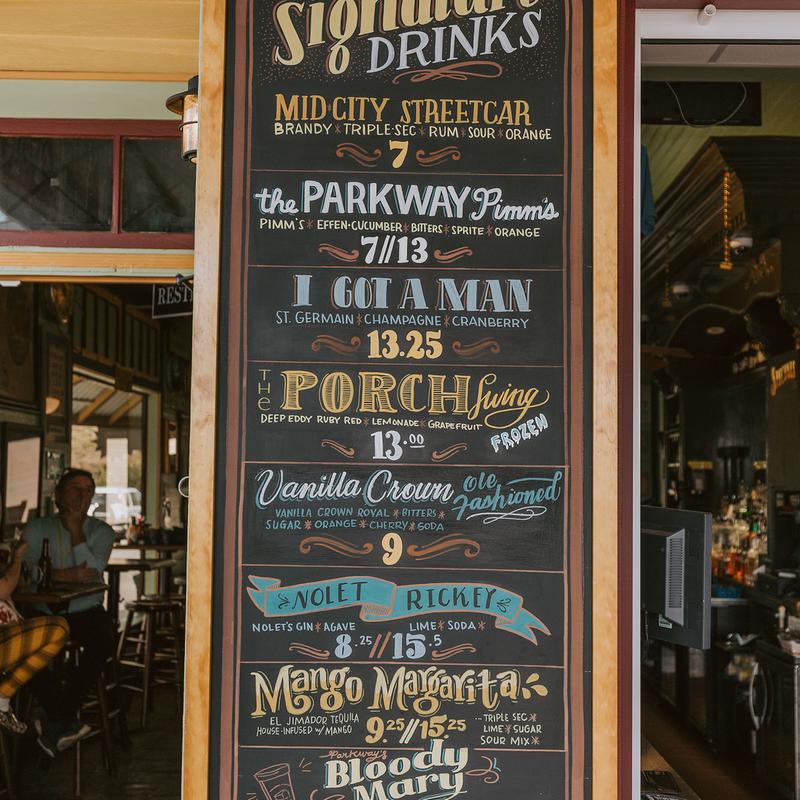 Signature
DRINKS
MID·CITY STREETCAR
BRANDY * TRIPLE·SEC * RUM * SOUR * ORANGE
7
the PARKWAY Pimm's
PIMM'S * EFFEN·CUCUMBER * BITTERS * SPRITE * ORANGE
7//13
I GOT A MAN
ST. GERMAIN * CHAMPAGNE * CRANBERRY
13.25
THE PORCH Swing
DEEP EDDY RUBY RED * LEMONADE * GRAPEFRUIT
FROZEN
13.00
Vanilla Crown Ole Fashioned
VANILLA CROWN ROYAL * BITTERS *
SUGAR * ORANGE * CHERRY * SODA
9
NOLET RICKEY
NOLET'S GIN * AGAVE LIME * SODA *
8.25//15.5
Mango Margarita
EL JIMADOR TEQUILA
HOUSE-INFUSED w/MANGO
9.25//15.25
TRIPLE SEC *
LIME * SUGAR
SOUR MIX *
Parkway's
Bloody
Mary
REST